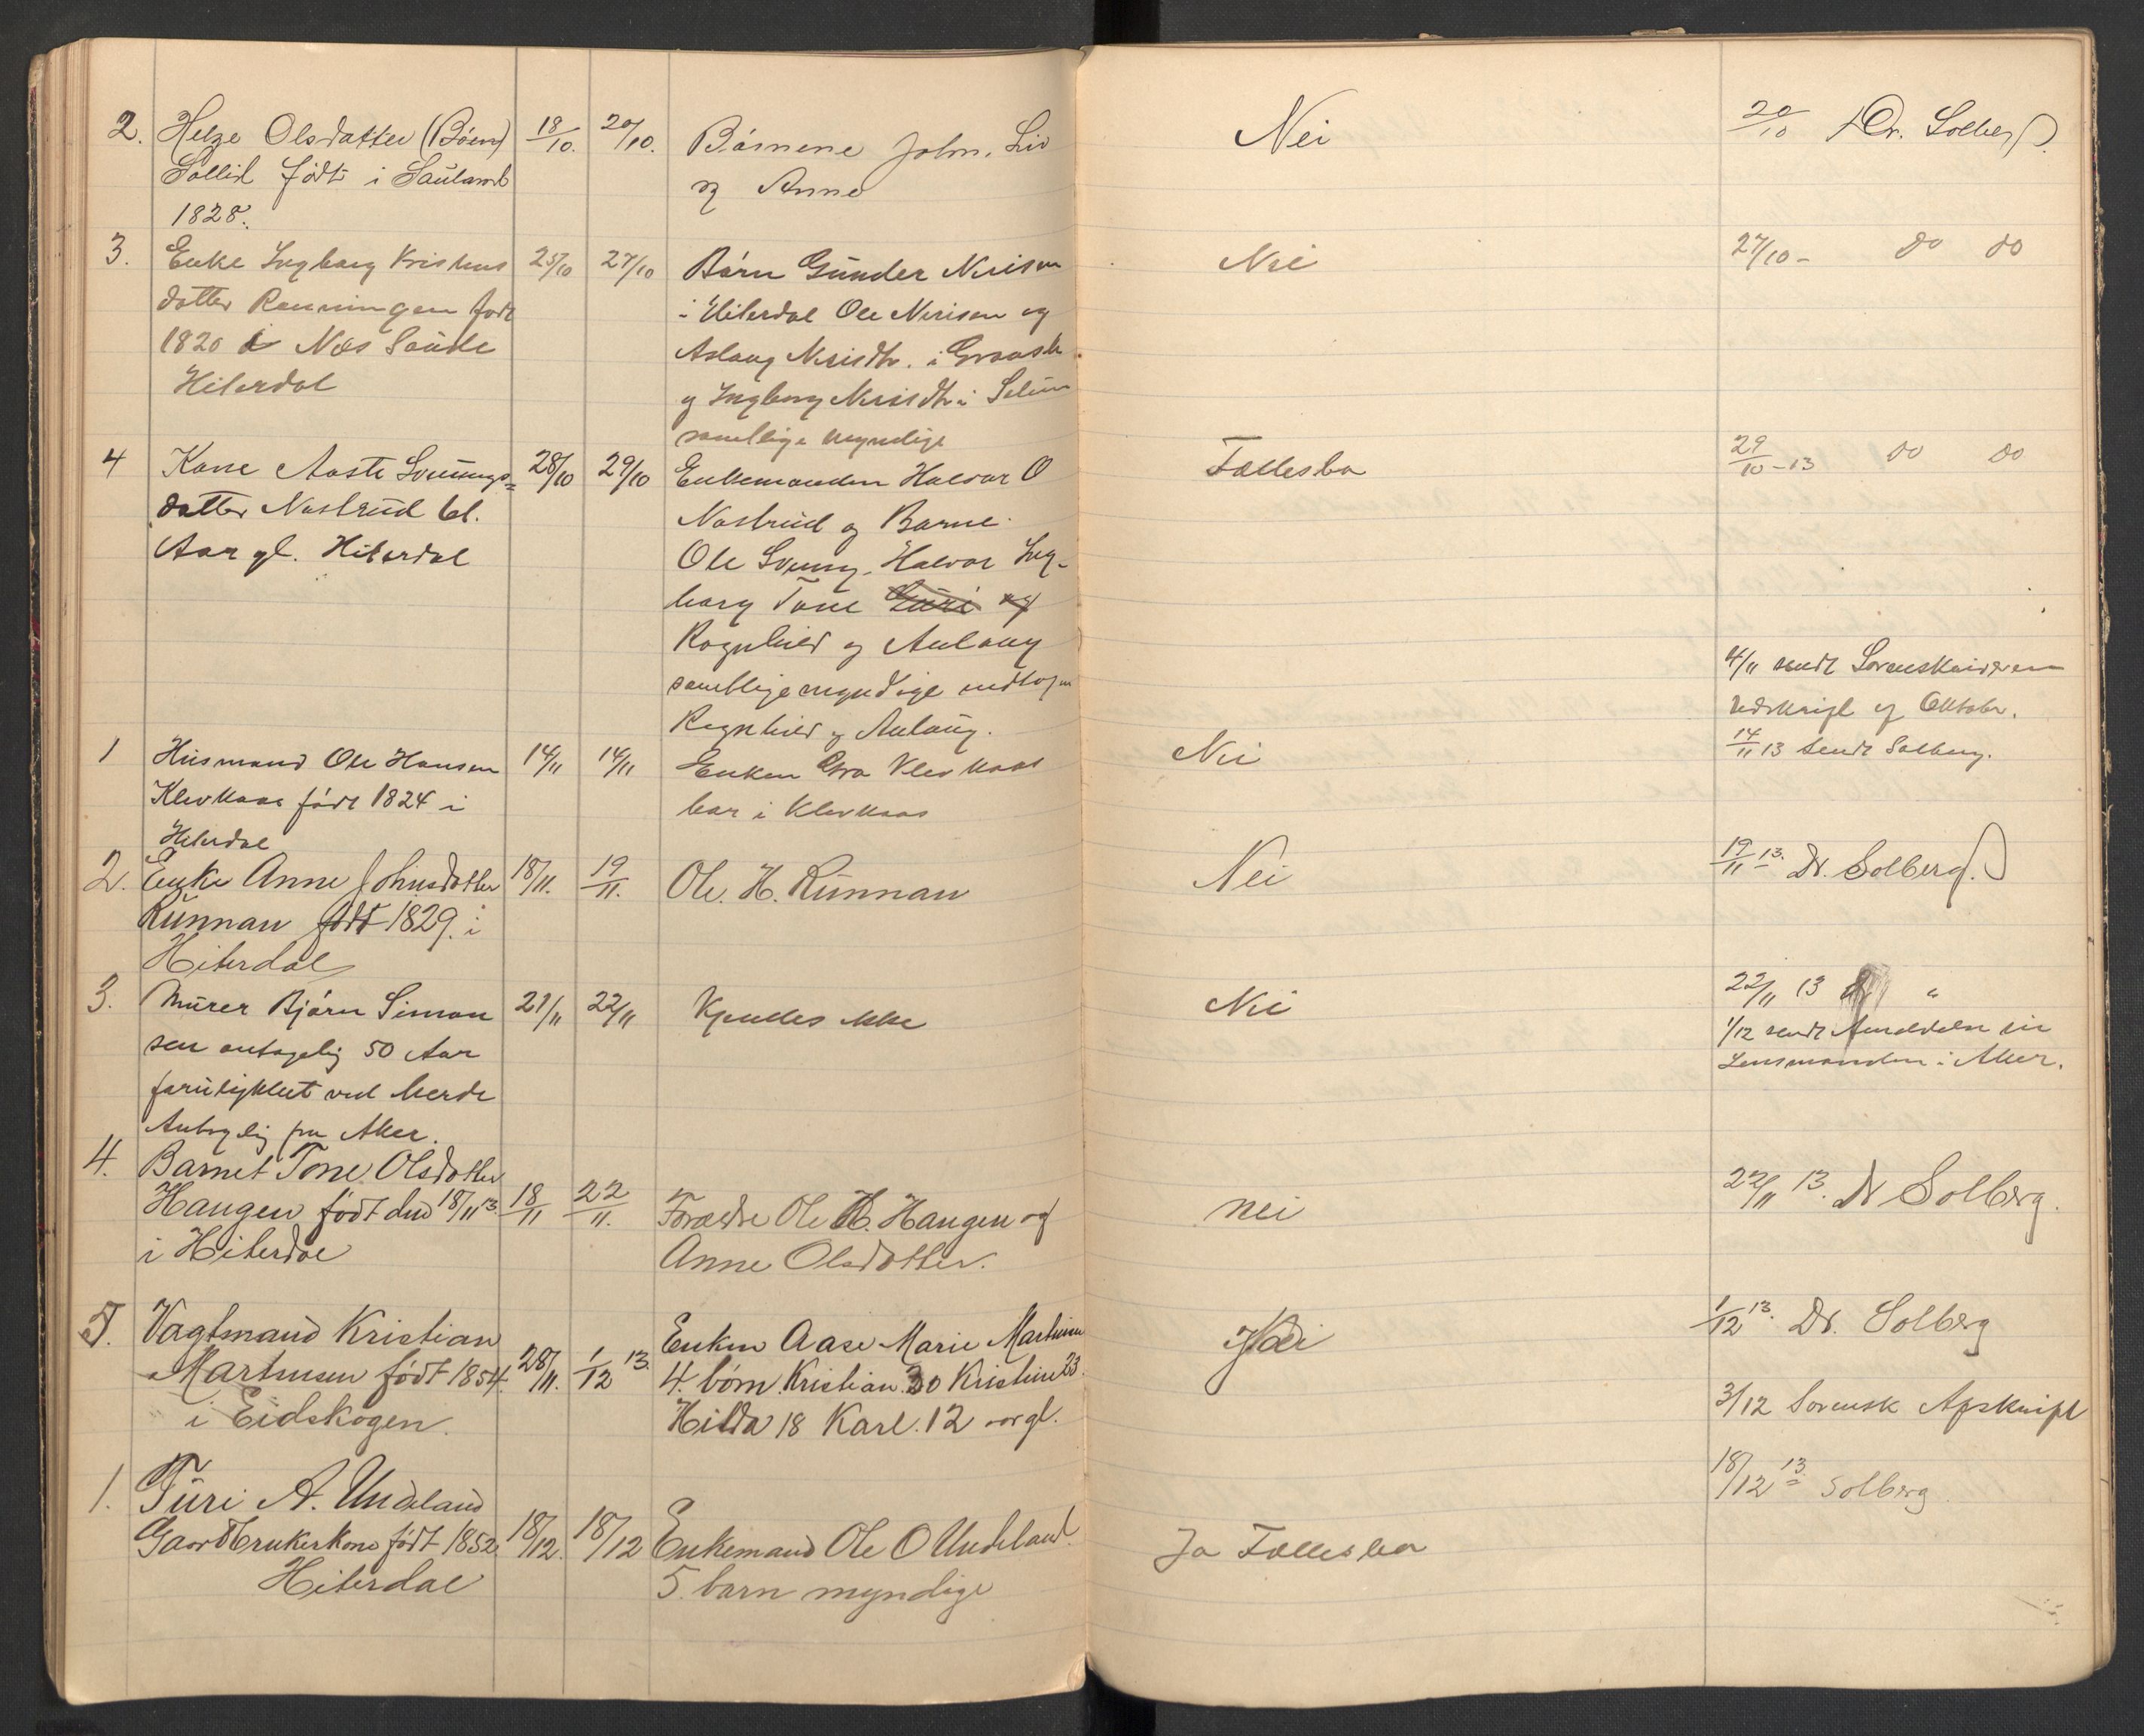 2. Helge Olsdatter (Bøen) 18/10. 20/10. Børnene John, Liv Nei 20/10 Dr. Solberg.
Sollid født i Sauland og Anne
1828.
3. Enke Ingborg Kristens 25/10 27/10 Børn Gunder Nirisen Nei 27/10 - do do
datter Rønningen født i Hiterdal Ole Nirisen og
1820 i Næs Saude Aslaug Nirisdtr. i Gransh.
Hiterdal og Ingborg Nirisdtr i Selim
samtlige myndige
4 Kone Aaste Svenungs= 28/10 29/10 Enkemanden Halvor O Fællesbo 29/10-13 do do
datter Nastrud 61. Nastrud og Barne.
Aar gl. Hiterdal Ole Svenung, Halvor Ing-
borg Tone Guri og
Ragnhild og Aslaug 4/11 sendt Sorenskriveren
samtlige myndige undtagen Udskrift af Oktober.
Ragnhild og Aslaug.
1 Husmand Ole Hansen 14/11 14/11 Enken Gro Klevkaas Nei 14/11 13 sendt Solberg.
Klevkaas født 1824 i bor i Klevkaas
Hiterdal
2. Enke Anne Johnsdotter 18/11. 19/11. Ole. H. Runnan Nei 19/11 13. Dr. Solberg.
Runnan født 1829. i
Hiterdal
3. Murer Bjørn Simon 21/11 22/11 Kjendes ikke Nei 22/11 13 "
sen antagelig 50 Aar 1/12 sendt Anmeldelse til
forulykket ved Lensmanden i Aker.
Antagelig fra Aker.
4. Barnet Tone Olsdotter
Haugen født den 18/11 13. 18/11 22/11. Forældre Ole H. Haugen og nei 22/11 13. Dr Solberg.
i Hiterdal Anne Olsdotter.
5. Vagtmand Kristian 28/11. 1/12 13. Enken Aase Marie Martinsen Nei 1/12 13. Dr. Solberg
Martinsen født 1854. 4. børn. Kristian. 30 Kristine 23.
i Eidskogen. Hilda 18 Karl. 12 aar gl. 3/12 Sorensk Afskrift
1. Turi A. Undeland 18/12 13 Solberg
Gaardbrukerkone født 1852 18/12. 18/12 Enkemand Ole O Undeland. Ja Fællesbo
Hiterdal 5. barn myndige